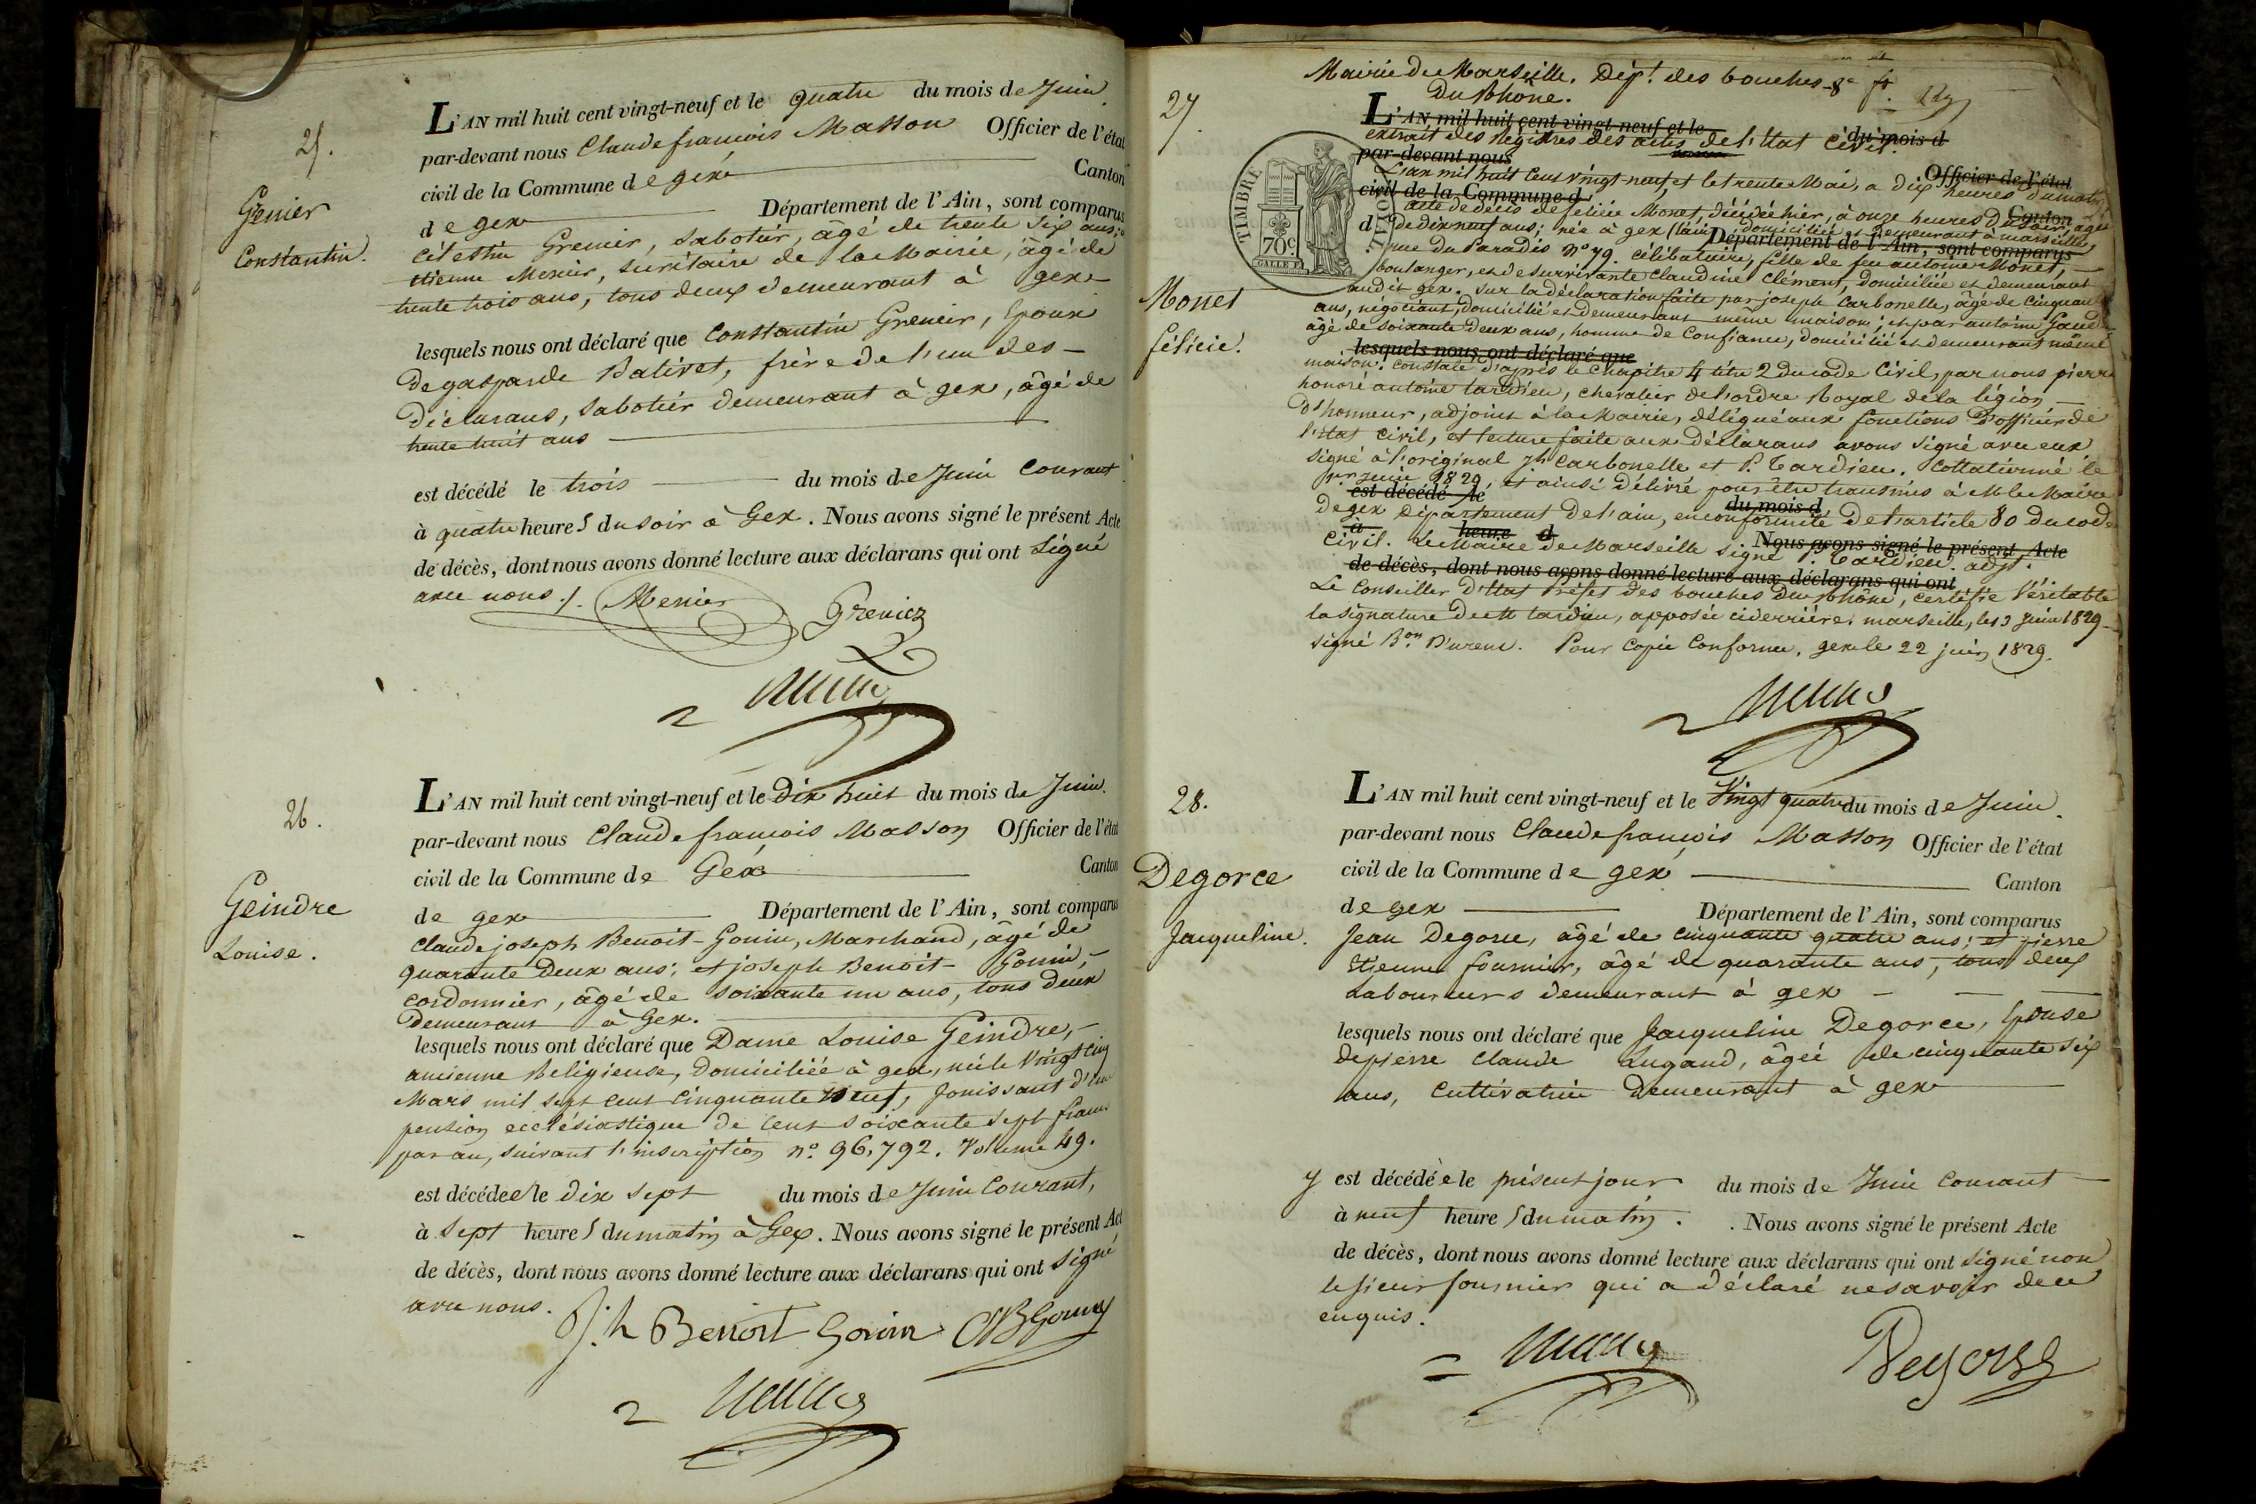 25.
Grenier
Constantin.
L'AN mil huit cent vingt-neuf et le quatre du mois de Juin
par-devant nous Claude françois Masson Officier de l'état
civil de la Commune de gex Canton
de gex Département de l'Ain, sont comparus
célestin Grenier, sabotier, agé de trente six ans;
etienne Menier, secrétaire de la Mairie, âgé de
trente trois ans, tous deux demeurant à gex
lesquels nous ont déclaré que Constantin Grenier, époux
de gasparde Balivet, frère de l'un des
déclarans, sabotier demeurant à gex, âgé de
trente huit ans
est décédé le trois du mois de Juin Courant
à quatre heures du soir à Gex. Nous avons signé le présent Acte
de décès, dont nous avons donné lecture aux déclarans qui ont signé
avec nous ./. Menier Grenier
26.
Geindre
Louise.
L'AN mil huit cent vingt-neuf et le dix huit du mois de Juin.
par-devant nous Claude françois Masson Officier de l'état
civil de la Commune de Gex Canton
de gex Département de l'Ain, sont comparus
Claude joseph Benoit-Gonin, Marchand, âgé de
quarante deux ans; et joseph Benoit-Gonin,
cordonnier, âgé de soixante un ans, tous deux
demeurant à Gex.
lesquels nous ont déclaré que Dame Louise Geindre,
ancienne Religieuse, domiciliée à gex, née le vingt cinq
Mars mil sept cent cinquante neuf, jouissant d'une
pension ecclésiastique de cent soixante sept francs
par an, suivant l'inscription n.° 96,792. Volume 49.
est décédée le dix sept du mois de Juin Courant,
à sept heures du matin à Gex. Nous avons signé le présent Act
de décès, dont nous avons donné lecture aux déclarans qui ont signé
avec nous.
J.h Benoit Gonin CJBGonin
27.
Monet
félicie.
TIMBRE
70c.
Mairie de Marseille. Dép.t des bouches
du Rhône.
L'AN mil huit cent vingt-neuf et le du mois d
extrait des régistres des actes de l'état Civil.
par-devant nous Officier de l'état
L'an mil huit cent vingt-neuf et le trente Mai, a dix heures du matin
civil de la Commune d Canton
acte de décès de félicie Monet, décédée hier, à onze heures du soir, agée
de dix neuf ans; née à gex (l'ain) domiciliée et demeurant à marseille,
d Département de l'Ain, sont comparus
rue du Paradis n.° 79. célibataire, fille de feu antoine Monet,
boulanger, et de survivante Claudine Clément, domiciliée et demeurant
audit gex. sur la déclaration faite par joseph Carbonelle, âgé de Cinquante
ans, négociant, domicilié et demeurant même maison; et par antoine
âgé de soixante deux ans, homme de Confiance, domicilié et demeurant même
lesquels nous ont déclaré que
maison. Constaté d'après le chapitre 4 titre 2 du code Civil, par nous pierre
honoré antoine tardieu, chevalier de l'ordre Royal de la légion
d'honneur, adjoint à la Mairie, délégué aux fonctions d'officier de
l'état civil, et lecture faite aux déclarans avons signé avec eux
signé à l'original jh Carbonelle et P. Tardieu. Collationné le
1er juin 1829, et ainsi délivré pour être transmis à M le Maire
est décédé le du mois d
de gex département de l'ain, en conformité de l'article 80 du code
à heure d Nous avons signé le présent Acte
Civil. Le Maire de Marseille signé P. Tardieu. adj.t
de décès, dont nous avons donné lecture aux déclarans qui ont
Le Conseiller d'Etat Préfet des bouches du Rhône, certifie véritable
la signature de M tardieu, apposée ciderrière. marseille, le 3 juin 1829
signé B.on Pour Copie Conforme, gex le 22 juin 1829.
28.
Degorce
Jacqueline.
L'AN mil huit cent vingt-neuf et le Vingt quatre du mois de Juin.
par-devant nous Claude françois Masson Officier de l'état
civil de la Commune de gex Canton
de gex Département de l'Ain, sont comparus
Jean Degorce, âgé de cinquante quatre ans; et pierre
Etienne fournier, âgé de quarante ans, tous deux
Laboureurs demeurant à gex
lesquels nous ont déclaré que Jacqueline Degorce, Epouse
de pierre Claude Lugand, âgée de cinquante six
ans, Cultivatrice demeurant à gex
y est décédée le présent jour du mois de Juin Courant
à neuf heures du matin. Nous avons signé le présent Acte
de décès, dont nous avons donné lecture aux déclarans qui ont signé non
le sieur fournier qui a déclaré ne savoir de ce
enquis.
Degorce